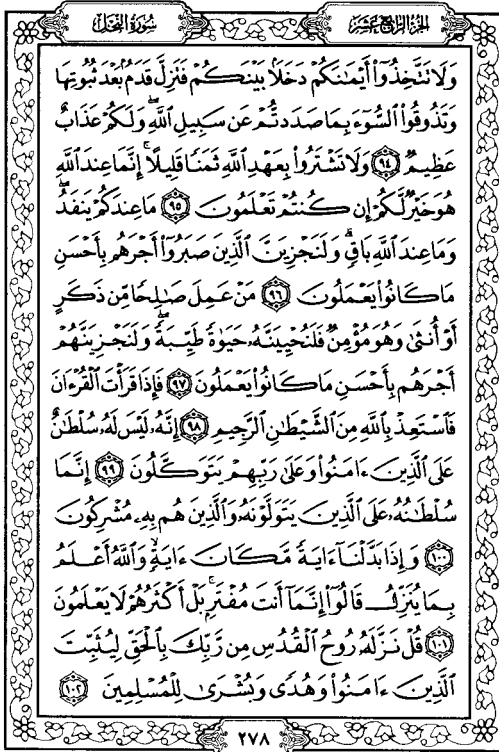 سورة النحل
الجزء الرابع عشر
وَلَا تَتَّخِذُوٓا۟ أَيْمَٰنَكُمْ دَخَلًۢا بَيْنَكُمْ فَتَزِلَّ قَدَمٌۢ بَعْدَ ثُبُوتِهَا
وَتَذُوقُوا۟ ٱلسُّوٓءَ بِمَا صَدَدتُّمْ عَن سَبِيلِ ٱللَّهِ ۖ وَلَكُمْ عَذَابٌ
عَظِيمٌ ﴿٩٤﴾ وَلَا تَشْتَرُوا۟ بِعَهْدِ ٱللَّهِ ثَمَنًا قَلِيلًا ۚ إِنَّمَا عِندَ ٱللَّهِ
هُوَ خَيْرٌ لَّكُمْ إِن كُنتُمْ تَعْلَمُونَ ﴿٩٥﴾ مَا عِندَكُمْ يَنفَدُ ۖ
وَمَا عِندَ ٱللَّهِ بَاقٍ ۗ وَلَنَجْزِيَنَّ ٱلَّذِينَ صَبَرُوٓا۟ أَجْرَهُم بِأَحْسَنِ
مَا كَانُوا۟ يَعْمَلُونَ ﴿٩٦﴾ مَنْ عَمِلَ صَٰلِحًا مِّن ذَكَرٍ
أَوْ أُنثَىٰ وَهُوَ مُؤْمِنٌ فَلَنُحْيِيَنَّهُۥ حَيَوٰةً طَيِّبَةً ۖ وَلَنَجْزِيَنَّهُمْ
أَجْرَهُم بِأَحْسَنِ مَا كَانُوا۟ يَعْمَلُونَ ﴿٩٧﴾ فَإِذَا قَرَأْتَ ٱلْقُرْءَانَ
فَٱسْتَعِذْ بِٱللَّهِ مِنَ ٱلشَّيْطَٰنِ ٱلرَّجِيمِ ﴿٩٨﴾ إِنَّهُۥ لَيْسَ لَهُۥ سُلْطَٰنٌ
عَلَى ٱلَّذِينَ ءَامَنُوا۟ وَعَلَىٰ رَبِّهِمْ يَتَوَكَّلُونَ ﴿٩٩﴾ إِنَّمَا
سُلْطَٰنُهُۥ عَلَى ٱلَّذِينَ يَتَوَلَّوْنَهُۥ وَٱلَّذِينَ هُم بِهِۦ مُشْرِكُونَ
﴿١٠٠﴾ وَإِذَا بَدَّلْنَآ ءَايَةً مَّكَانَ ءَايَةٍ ۙ وَٱللَّهُ أَعْلَمُ
بِمَا يُنَزِّلُ قَالُوٓا۟ إِنَّمَآ أَنتَ مُفْتَرٍۭ ۚ بَلْ أَكْثَرُهُمْ لَا يَعْلَمُونَ
﴿١٠١﴾ قُلْ نَزَّلَهُۥ رُوحُ ٱلْقُدُسِ مِن رَّبِّكَ بِٱلْحَقِّ لِيُثَبِّتَ
ٱلَّذِينَ ءَامَنُوا۟ وَهُدًى وَبُشْرَىٰ لِلْمُسْلِمِينَ ﴿١٠٢﴾
٢٧٨